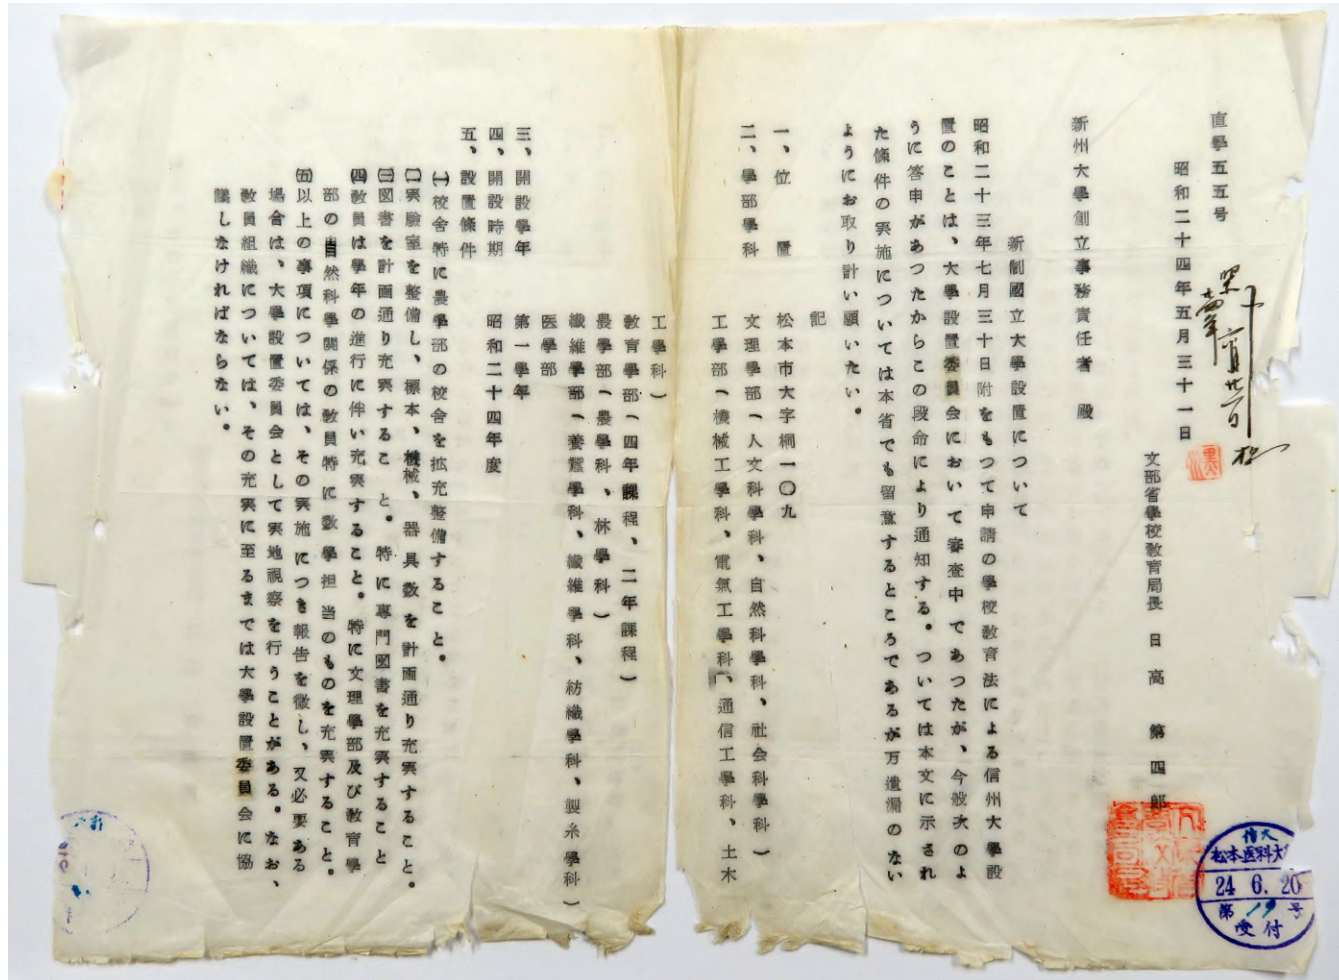 直學五五号
昭和二十四年五月三十一日
文部省學校教育局長　日　高　第　四　郎
新州大學創立事務責任者　殿
新制國立大學設置について
昭和二十三年七月三十日附をもつて申請の學校教育法による信州大學設
置のことは、大學設置委員会において審査中であつたが、今般次のよ
うに答申があつたからこの段命により通知する。ついては本文に示され
た條件の実施については本省でも留意するところであるが万遺漏のない
ようにお取り計い願いたい。
記
一、位　置　松本市大字桐一〇九
二、學部學科　文理學部（人文科學科、自然科學科、社会科學科）
工學部（機械工學科、電氣工學科、通信工學科、土木
工學科）
教育學部（四年課程、二年課程）
農學部（農學科、林學科）
纖維學部（養蚕學科、纖維學科、紡織學科、製糸學科）
医學部
三、開設學年　第一學年
四、開設時期　昭和二十四年度
五、設置條件
㈠校舎特に農學部の校舎を拡充整備すること。
㈡実驗室を整備し、標本、機械、器具数を計画通り充実すること。
㈢図書を計画通り充実すること。特に専門図書を充実すること
㈣教員は學年の進行に伴い充実すること。特に文理學部及び教育學
部の自然科學関係の教員特に数學担当のものを充実すること。
㈤以上の事項については、その実施につき報告を徴し、又必要ある
場合は、大學設置委員会として実地視察を行うことがある。なお、
教員組織については、その充実に至るまでは大學設置委員会に協
議しなければならない。
信大
松本医科大
24 6. 20
第 19 号
受付